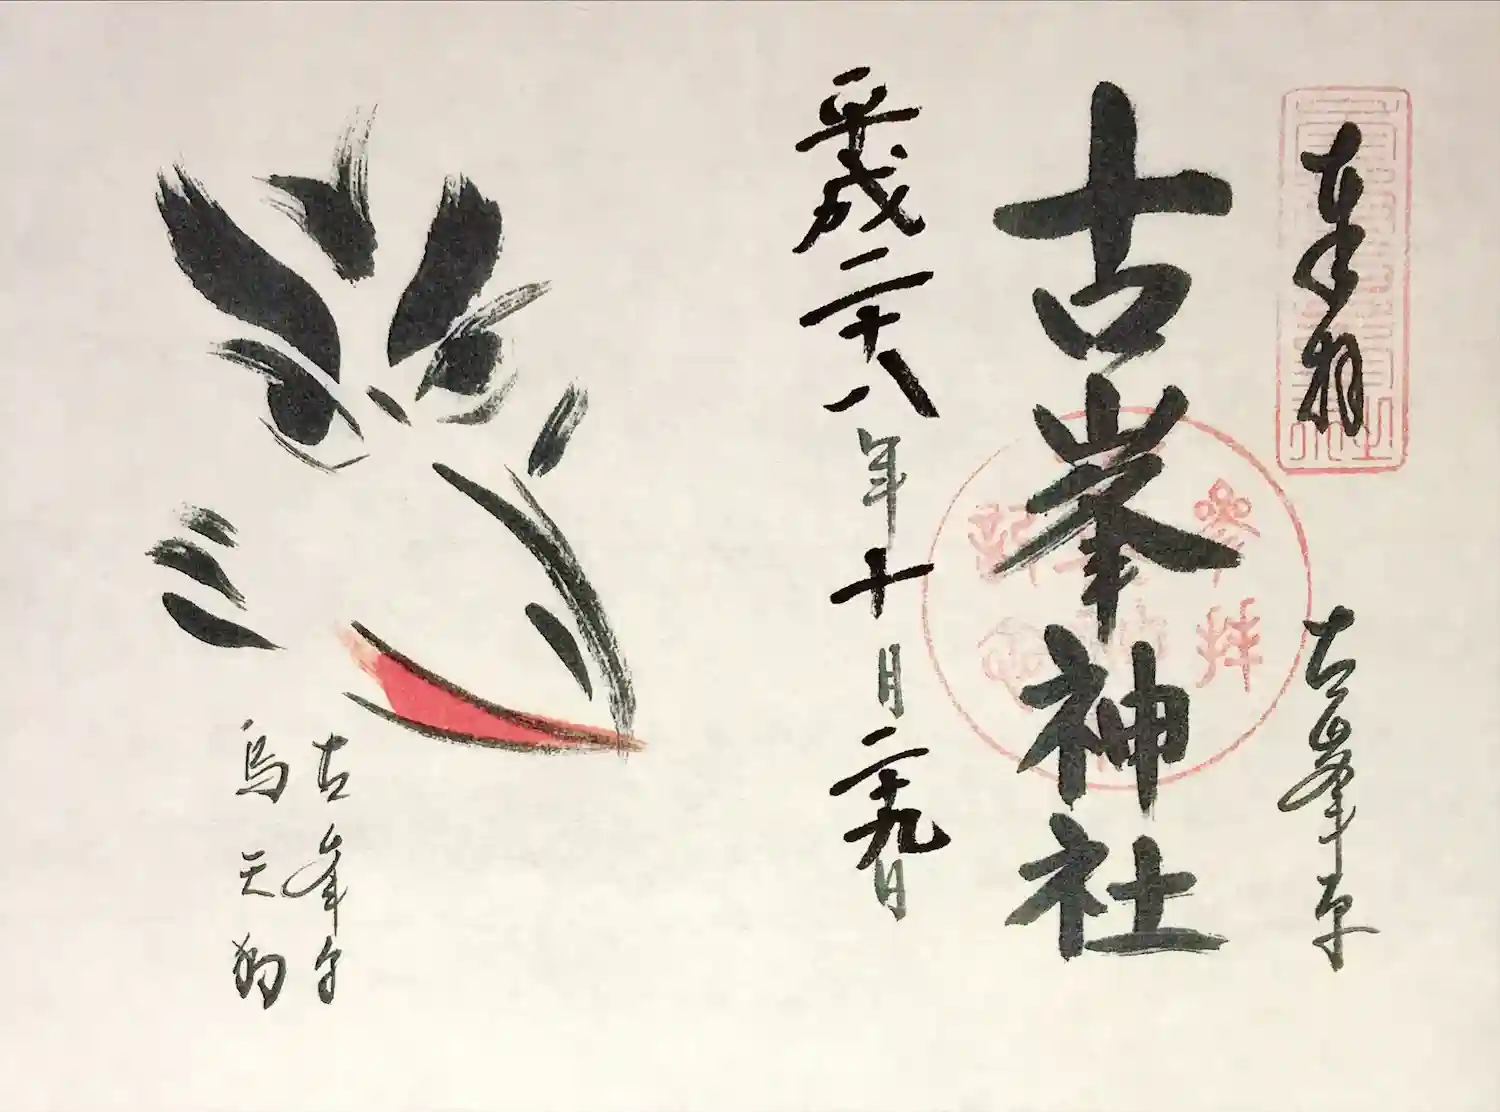 奉拝
古峯原
古峯神社
参拝
記念
平成二十八年十月二十九日
古峯原
烏天狗